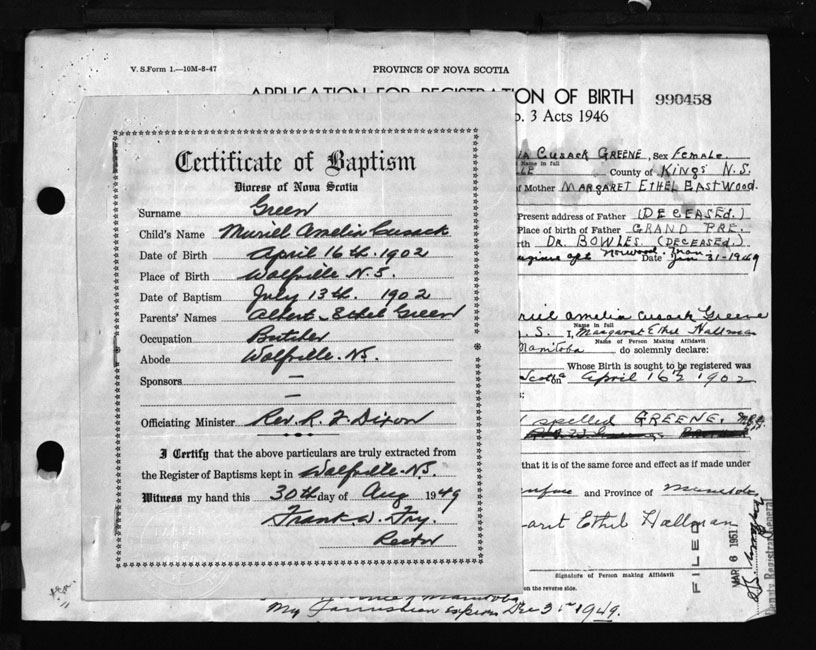 V. S. Form 1.—10M-8-47
PROVINCE OF NOVA SCOTIA
APPLICATION FOR REGISTRATION OF BIRTH
990458
o. 3 Acts 1946
Certificate of Baptism
Diocese of Nova Scotia
Surname Green
Child's Name Muriel Amelia Cusack
Date of Birth April 16th. 1902
Place of Birth Wolfville N.S.
Date of Baptism July 13th. 1902
Parents' Names Albert – Ethel Green
Occupation Butcher
Abode Wolfville. N.S.
Sponsors —
—
Officiating Minister Rev. R. F. Dixon
I Certify that the above particulars are truly extracted from
the Register of Baptisms kept in Wolfville. N.S.
Witness my hand this 30th day of Aug 1949
Frank W. Fry.
Rector
ia CUSACK GREENE, Sex Female
Name in full
LLE County of KINGS N.S.
of Mother MARGARET ETHEL EASTWOOD.
Present address of Father (DECEASED.)
Place of birth of Father GRAND PRE.
rth DR. BOWLES (DECEASED.)
apts Norwood. Man. Date Jan 31-1949
riel Amelia Cusack Greene
Name in full
.S. I, Margaret Ethel Hallman
Name of Person Making Affidavit
Manitoba do solemnly declare:
Whose Birth is sought to be registered was
Scotia on April 16th 1902
s:
spelled GREENE.
that it is of the same force and effect as if made under
and Province of Manitoba
garet Ethel Hallman
Signature of Person making Affidavit
on the reverse side.
FILED
MAR 6 1951
Deputy Registrar General
Manitoba
My Commission expires Dec 31st 1949.